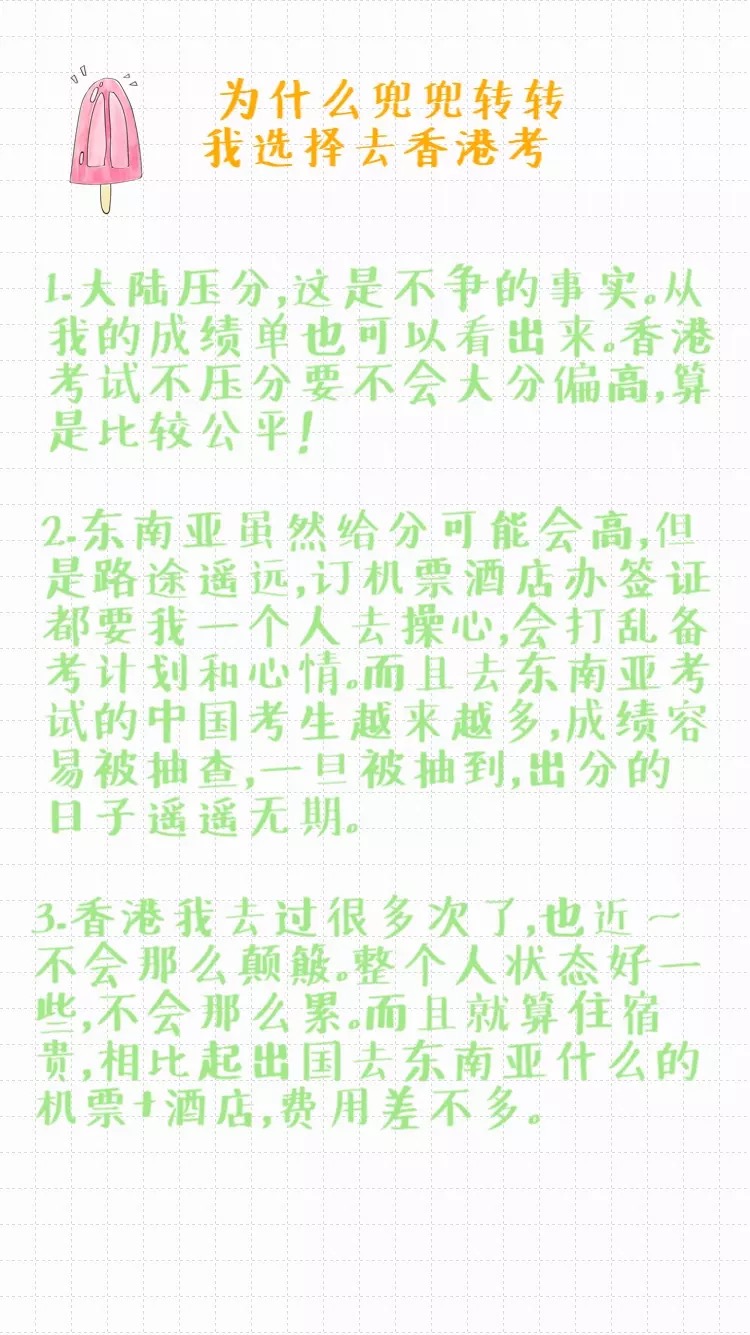 为什么兜兜转转
我选择去香港考
1.大陆压分,这是不争的事实。从
我的成绩单也可以看出来。香港
考试不压分要不会大分偏高,算
是比较公平!
2.东南亚虽然给分可能会高,但
是路途遥远,订机票酒店办签证
都要我一个人去操心,会打乱备
考计划和心情。而且去东南亚考
试的中国考生越来越多,成绩容
易被抽查,一旦被抽到,出分的
日子遥遥无期。
3.香港我去过很多次了,也近~
不会那么颠簸。整个人状态好一
些,不会那么累。而且就算住宿
贵,相比起出国去东南亚什么的
机票+酒店,费用差不多。